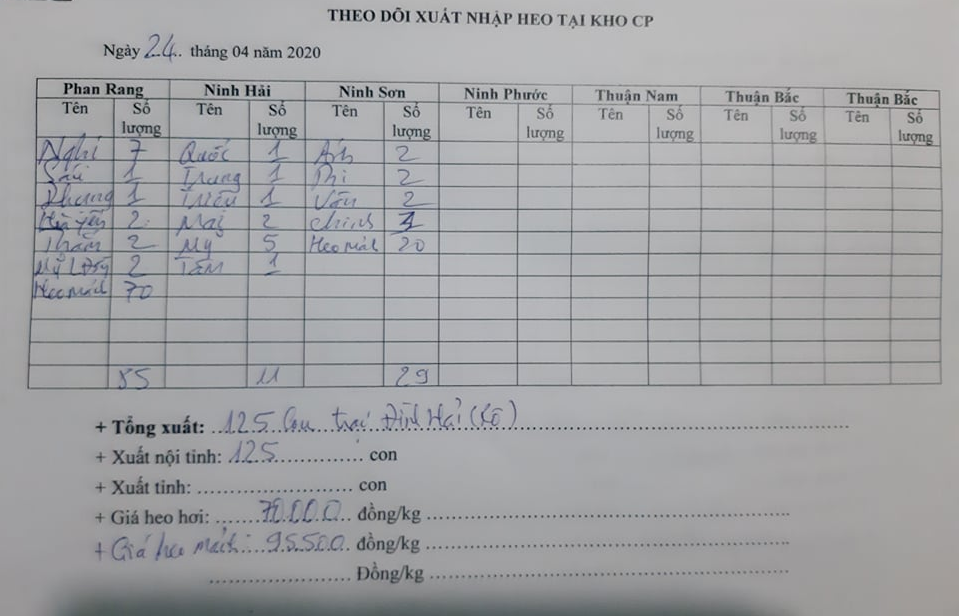 THEO DÕI XUẤT NHẬP HEO TẠI KHO CP
Ngày 24 tháng 04 năm 2020
Phan Rang Ninh Hải Ninh Sơn Ninh Phước Thuận Nam Thuận Bắc Thuận Bắc
Tên Số lượng Tên Số lượng Tên Số lượng Tên Số lượng Tên Số lượng Tên Số lượng Tên Số lượng
Nghi 7 Quốc 1 Ánh 2
Sáu 1 Trang 1 Phi 2
Phung 1 Triều 1 Vân 2
2 Mai 2 Chinh 3
Thắm 2 My 5 Heo Mảnh 20
2 Tâm 1
Heo mảnh 70
85 11 29
+ Tổng xuất: 125 Con trại Đình Hải (Kô)
+ Xuất nội tỉnh: 125 con
+ Xuất tỉnh: con
+ Giá heo hơi: 70.000 đồng/kg
+ Giá heo mảnh: 95.500 đồng/kg
Đồng/kg